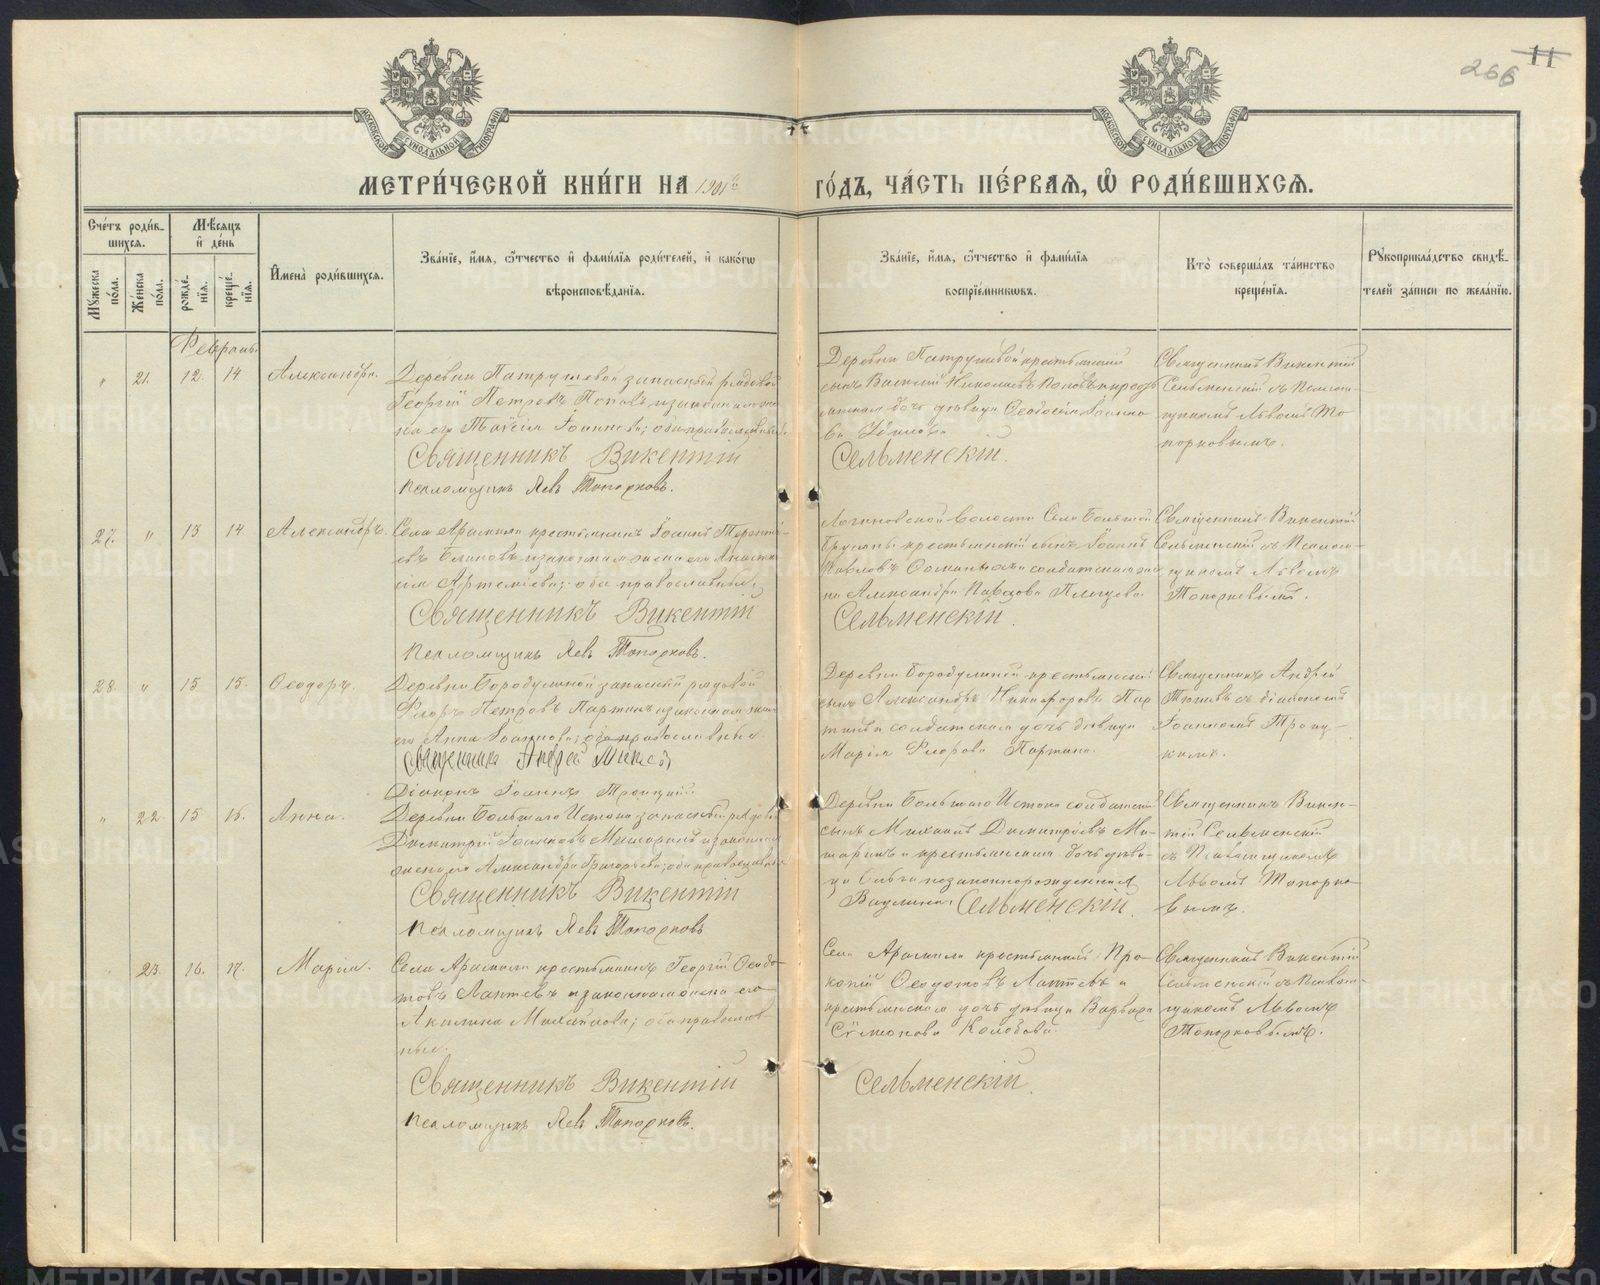 266 11
МЕТРИ́ЧЕСКОЙ КНИ́ГИ НА 1901й ГО́ДЪ, ЧА́СТЬ ПЕ́РВАЯ, Ѡ҆ РОДИ́ВШИХСЯ.
Сче́тъ роди́в-
шихся.
Мꙋ́жеска по́ла.
Же́нска по́ла.
Мѣ́сяцъ
и҆ де́нь
рожде́-
нїя.
креще́-
нїя.
И҆мена̀ роди́вшихся.
Зва́нїе, и҆́мя, ѻ҆́тчество и҆ фами́лїя роди́телей, и҆ како́гѡ
вѣроисповѣ́данїя.
Зва́нїе, и҆́мя, ѻ҆́тчество и҆ фами́лїя
воспрїе́мникѡвъ.
Кто̀ соверша́лъ та́инство
креще́нїя.
Рꙋкоприкла́дство свидѣ́-
телей за́писи по жела́нїю.
Февраль.
" 21. 12. 14 Александра.
Деревни Патрушевой запасный рядовой
Георгій Петровъ Поповъ и законная же-
на его Таисія Іоаннова; оба православные.
Священникъ Викентій Сельменскій.
Псаломщикъ Левъ Топорковъ.
Деревни Патрушевой крестьянскій
сынъ Василій Николаевъ Поповъ и
дочь дѣвица Ѳеодосія Іоанно-
ва
Священникъ Викентій
Сельменскій съ Псалом-
щикомъ Львомъ То-
порковымъ.
27. " 13 14 Александръ.
Села Арамили крестьянинъ Іоаннъ Теренті-
евъ и законная жена его Анаста-
сія Артеміева; оба православные.
Священникъ Викентій Сельменскій.
Псаломщикъ Левъ Топорковъ.
Логиновской волости Села Большой
Брусяны крестьянскій сынъ Іоаннъ
Павловъ и солдатская же-
на Александра
Священникъ Викентій
Сельменскій съ Псалом-
щикомъ Львомъ
Топорковымъ.
28. " 15 15. Ѳеодоръ.
Деревни Бородулиной запасный рядовой
Флоръ Петровъ Партинъ и законная жена
его Анна Іоаннова; оба православные.
Священникъ Андрей
Діаконъ Іоаннъ Троицкій.
Деревни Бородулиной крестьянскій
сынъ Александръ Никифоровъ Пар-
тинъ и солдатская дочь дѣвица
Марія Флорова Партина.
Священникъ Андрей
съ діакономъ
Іоанномъ Троиц-
кимъ.
" 22. 15 16. Анна.
Деревни Большаго Истока запасный рядовой
Димитрій Іоанновъ и законная
жена его Александра Григорьева; оба православные.
Священникъ Викентій Сельменскій.
Псаломщикъ Левъ Топорковъ
Деревни Большаго Истока солдатскій
сынъ Михаилъ Димитріевъ
и крестьянская дочь дѣви-
ца Ольга незаконнорожденная
Священникъ Викен-
тій Сельменскій
съ Псаломщикомъ
Львомъ Топорко-
вымъ.
23. 16. 17. Марія.
Села Арамили крестьянинъ Георгій Ѳеодо-
товъ Лаптевъ и законная жена его
Акилина Михайлова; оба православ-
ные.
Священникъ Викентій Сельменскій.
Псаломщикъ Левъ Топорковъ.
Села Арамили крестьянинъ Про-
копій Ѳеодотовъ Лаптевъ и
крестьянская дочь дѣвица Варвара
Сѵмеонова Колобова.
Священникъ Викентій
Сельменскій съ Псалом-
щикомъ Львомъ
Топорковымъ.